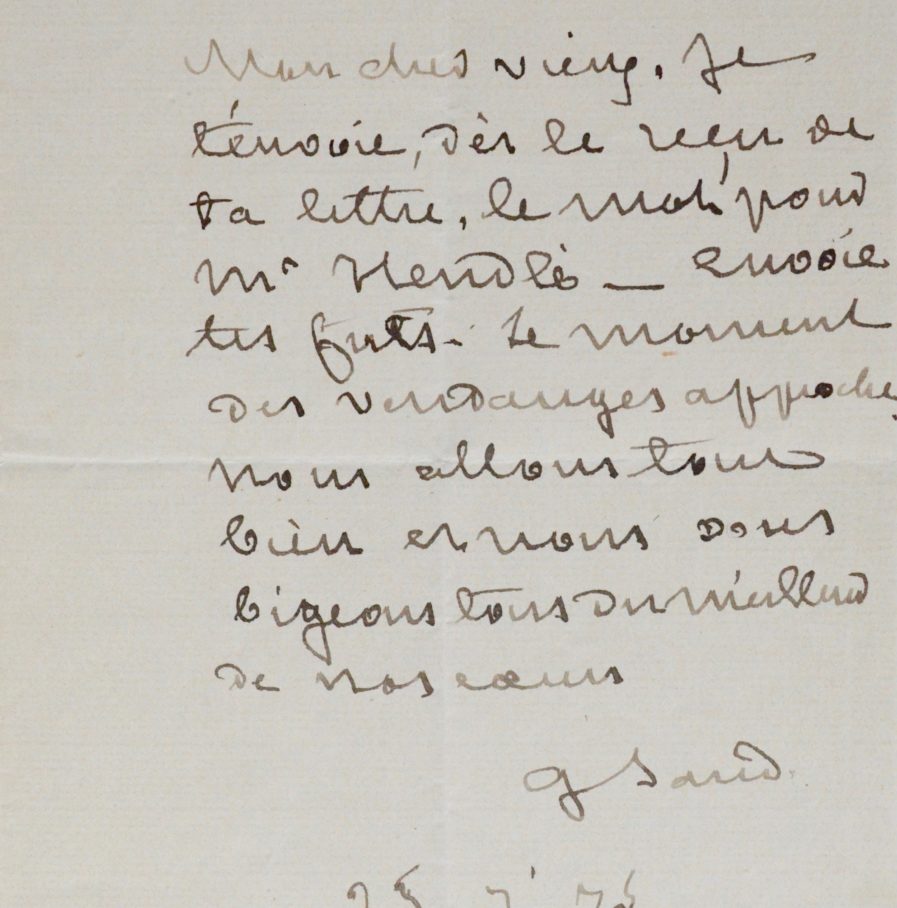 Mon cher vieux. Je
t'envoie, dès le reçu de
ta lettre, le mot pour
Mr Hendlé — Envoie
tes futs. Le moment
des vendanges approche
nous allons tous
bien et nous vous
bigeons tous du meilleur
de nos cœurs
G Sand